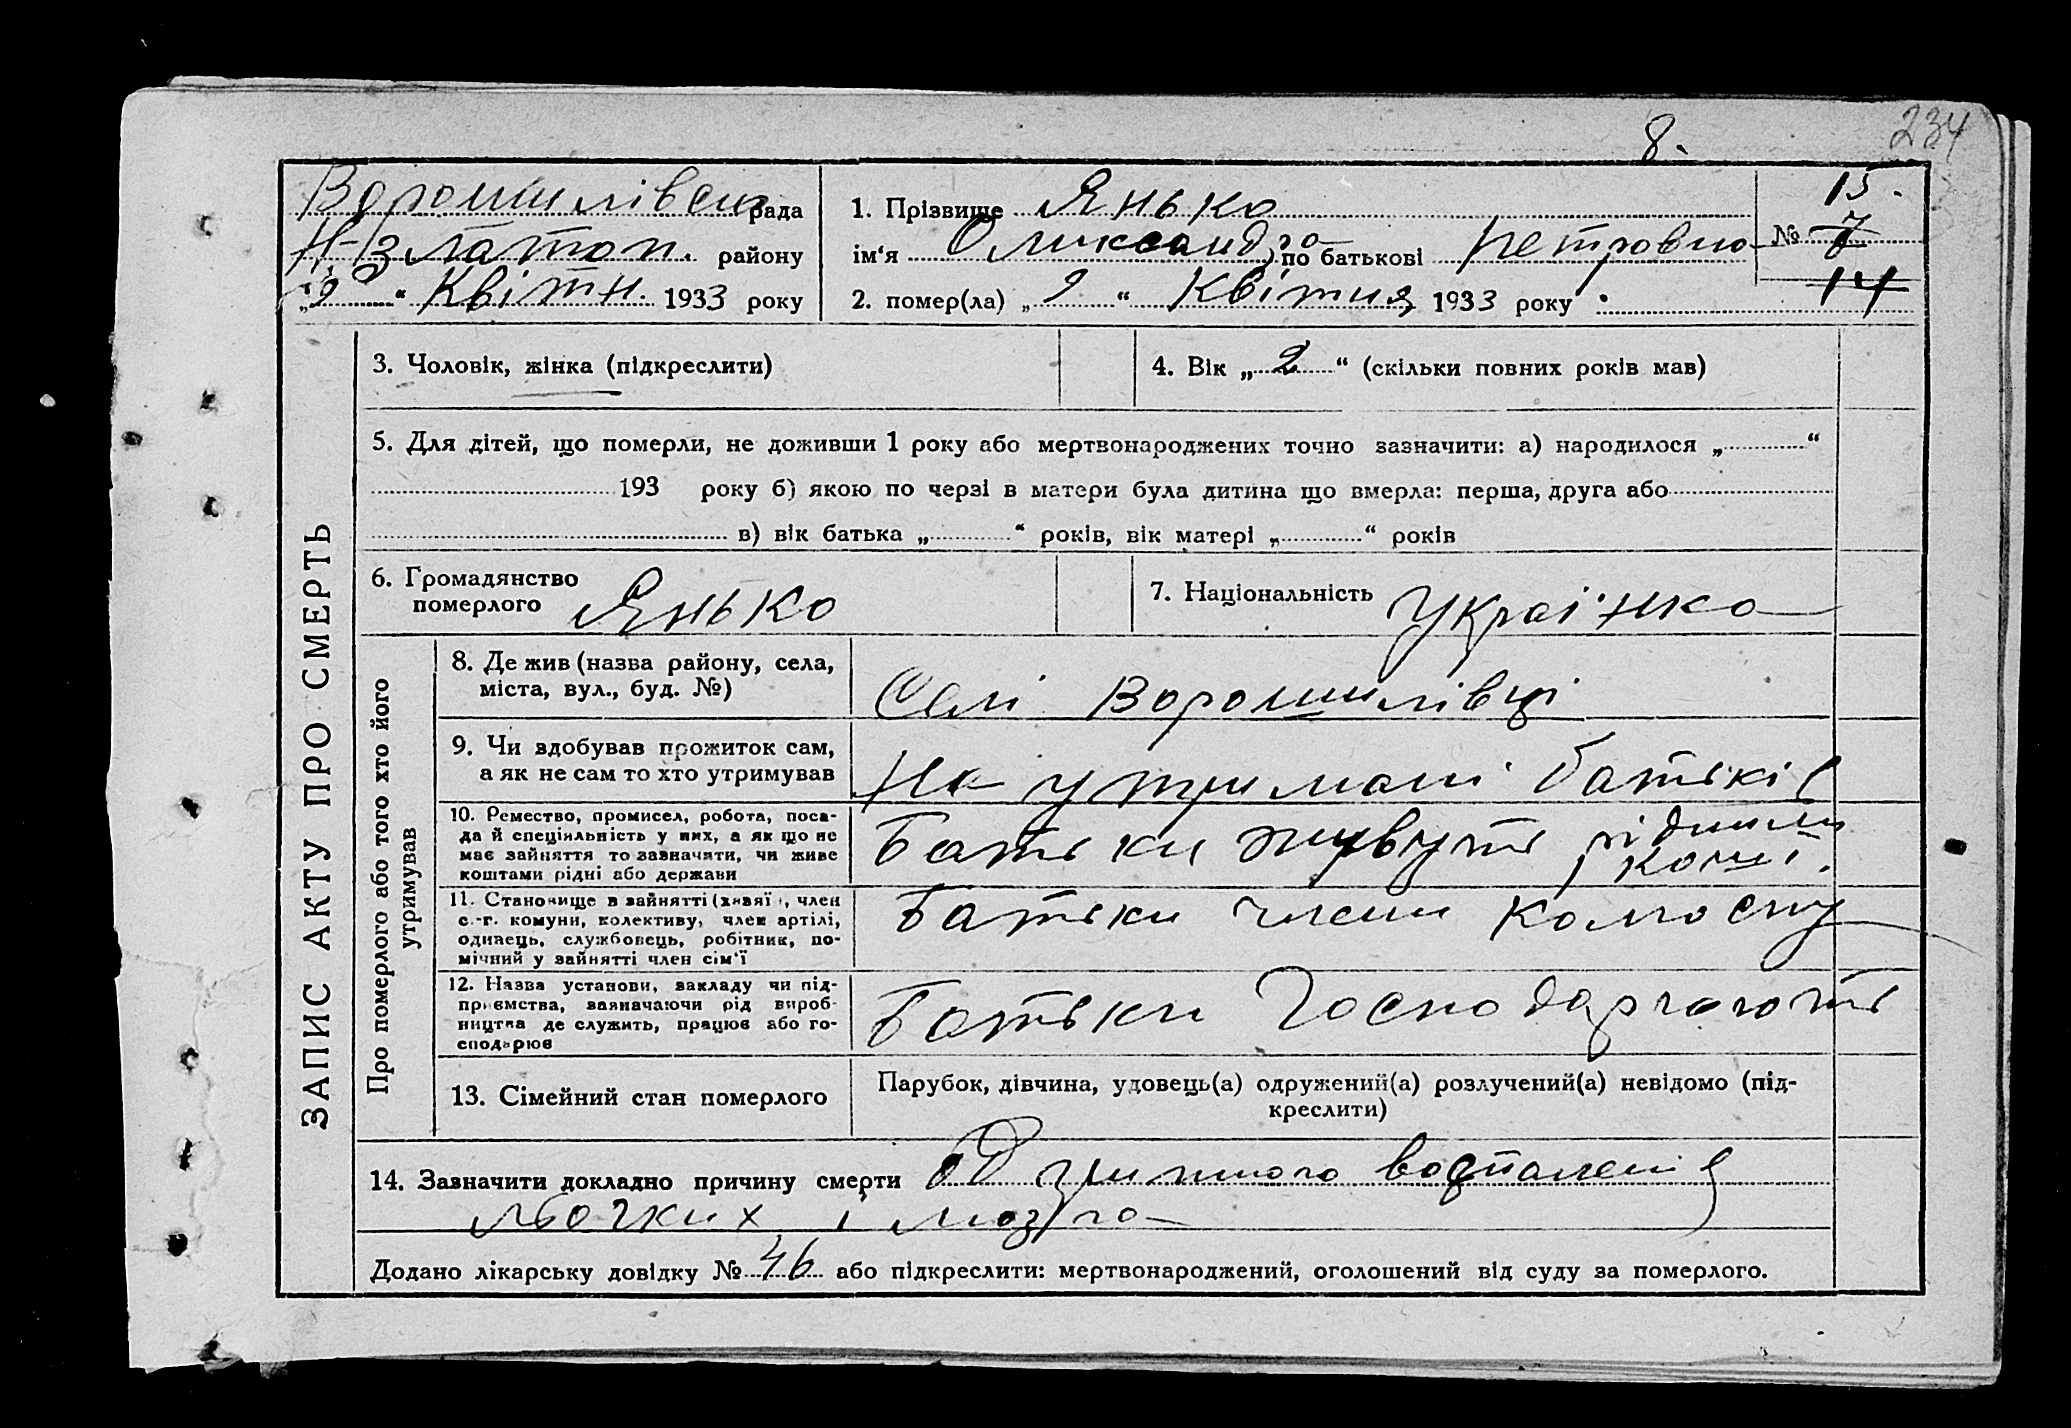 234
8.
Ворошилівська рада
Н-Златоп. району
„9“ Квітн. 1933 року
1. Прізвище Янько
ім'я Олександра по батькові петровна
2. помер(ла) „9“ Квітня 1933 року
15.
№ 7
14
ЗАПИС АКТУ ПРО СМЕРТЬ
3. Чоловік, жінка (підкреслити)
4. Вік „2“ (скільки повних років мав)
5. Для дітей, що померли, не доживши 1 року або мертвонароджених точно зазначити: а) народилося „ “
193 року б) якою по черзі в матери була дитина що вмерла: перша, друга або
в) вік батька „ “ років, вік матері „ “ років
6. Громадянство
померлого Янько
7. Національність Українка
Про померлого або того хто його
утримував
8. Де жив (назва району, села,
міста, вул., буд. №)
Селі Ворошилівці
9. Чи здобував прожиток сам,
а як не сам то хто утримував
На утримані батьків
10. Ремество, промисел, робота, поса-
да й спеціяльність у них, а як що не
має зайняття то зазначити, чи живе
коштами рідні або держави
Батьки живуть рідними
кошт.
11. Становище в зайнятті (хазяїн, член
с.-г. комуни, колективу, член артілі,
одинець, службовець, робітник, по-
мічний у зайнятті член сім'ї
Батьки члени колгоспу
12. Назва установи, закладу чи під-
приємства, зазначаючи рід вироб-
ництва де служить, працює або го-
сподарює
Батьки Господарюють
13. Сімейний стан померлого
Парубок, дівчина, удовець(а) одружений(а) розлучений(а) невідомо (під-
креслити)
14. Зазначити докладно причину смерти од воспаленія
льочких і мозга
Додано лікарську довідку № 46 або підкреслити: мертвонароджений, оголошений від суду за померлого.